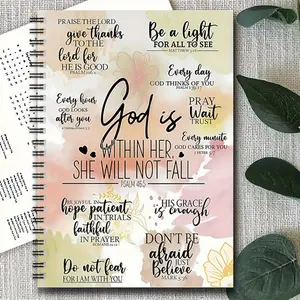 PRAISE THE LORD
give thanks
TO THE
lord for
HE IS GOOD
Be a light
FOR ALL TO SEE
Every day
GOD THINKS OF YOU
Every hour
GOD LOOKS
AFTER YOU
PRAY
Wait
TRUST
Every minute
GOD CARES FOR YOU
1 PETER 5:7
God is
WITHIN HER,
SHE WILL NOT FALL
PSALM 46:5
BE JOYFUL IN
hope patient
IN TRIALS
faithful
IN PRAYER
HIS GRACE
is enough
DON'T BE
afraid
JUST
Believe
MARK 5:36
Do not fear
FOR I AM WITH YOU